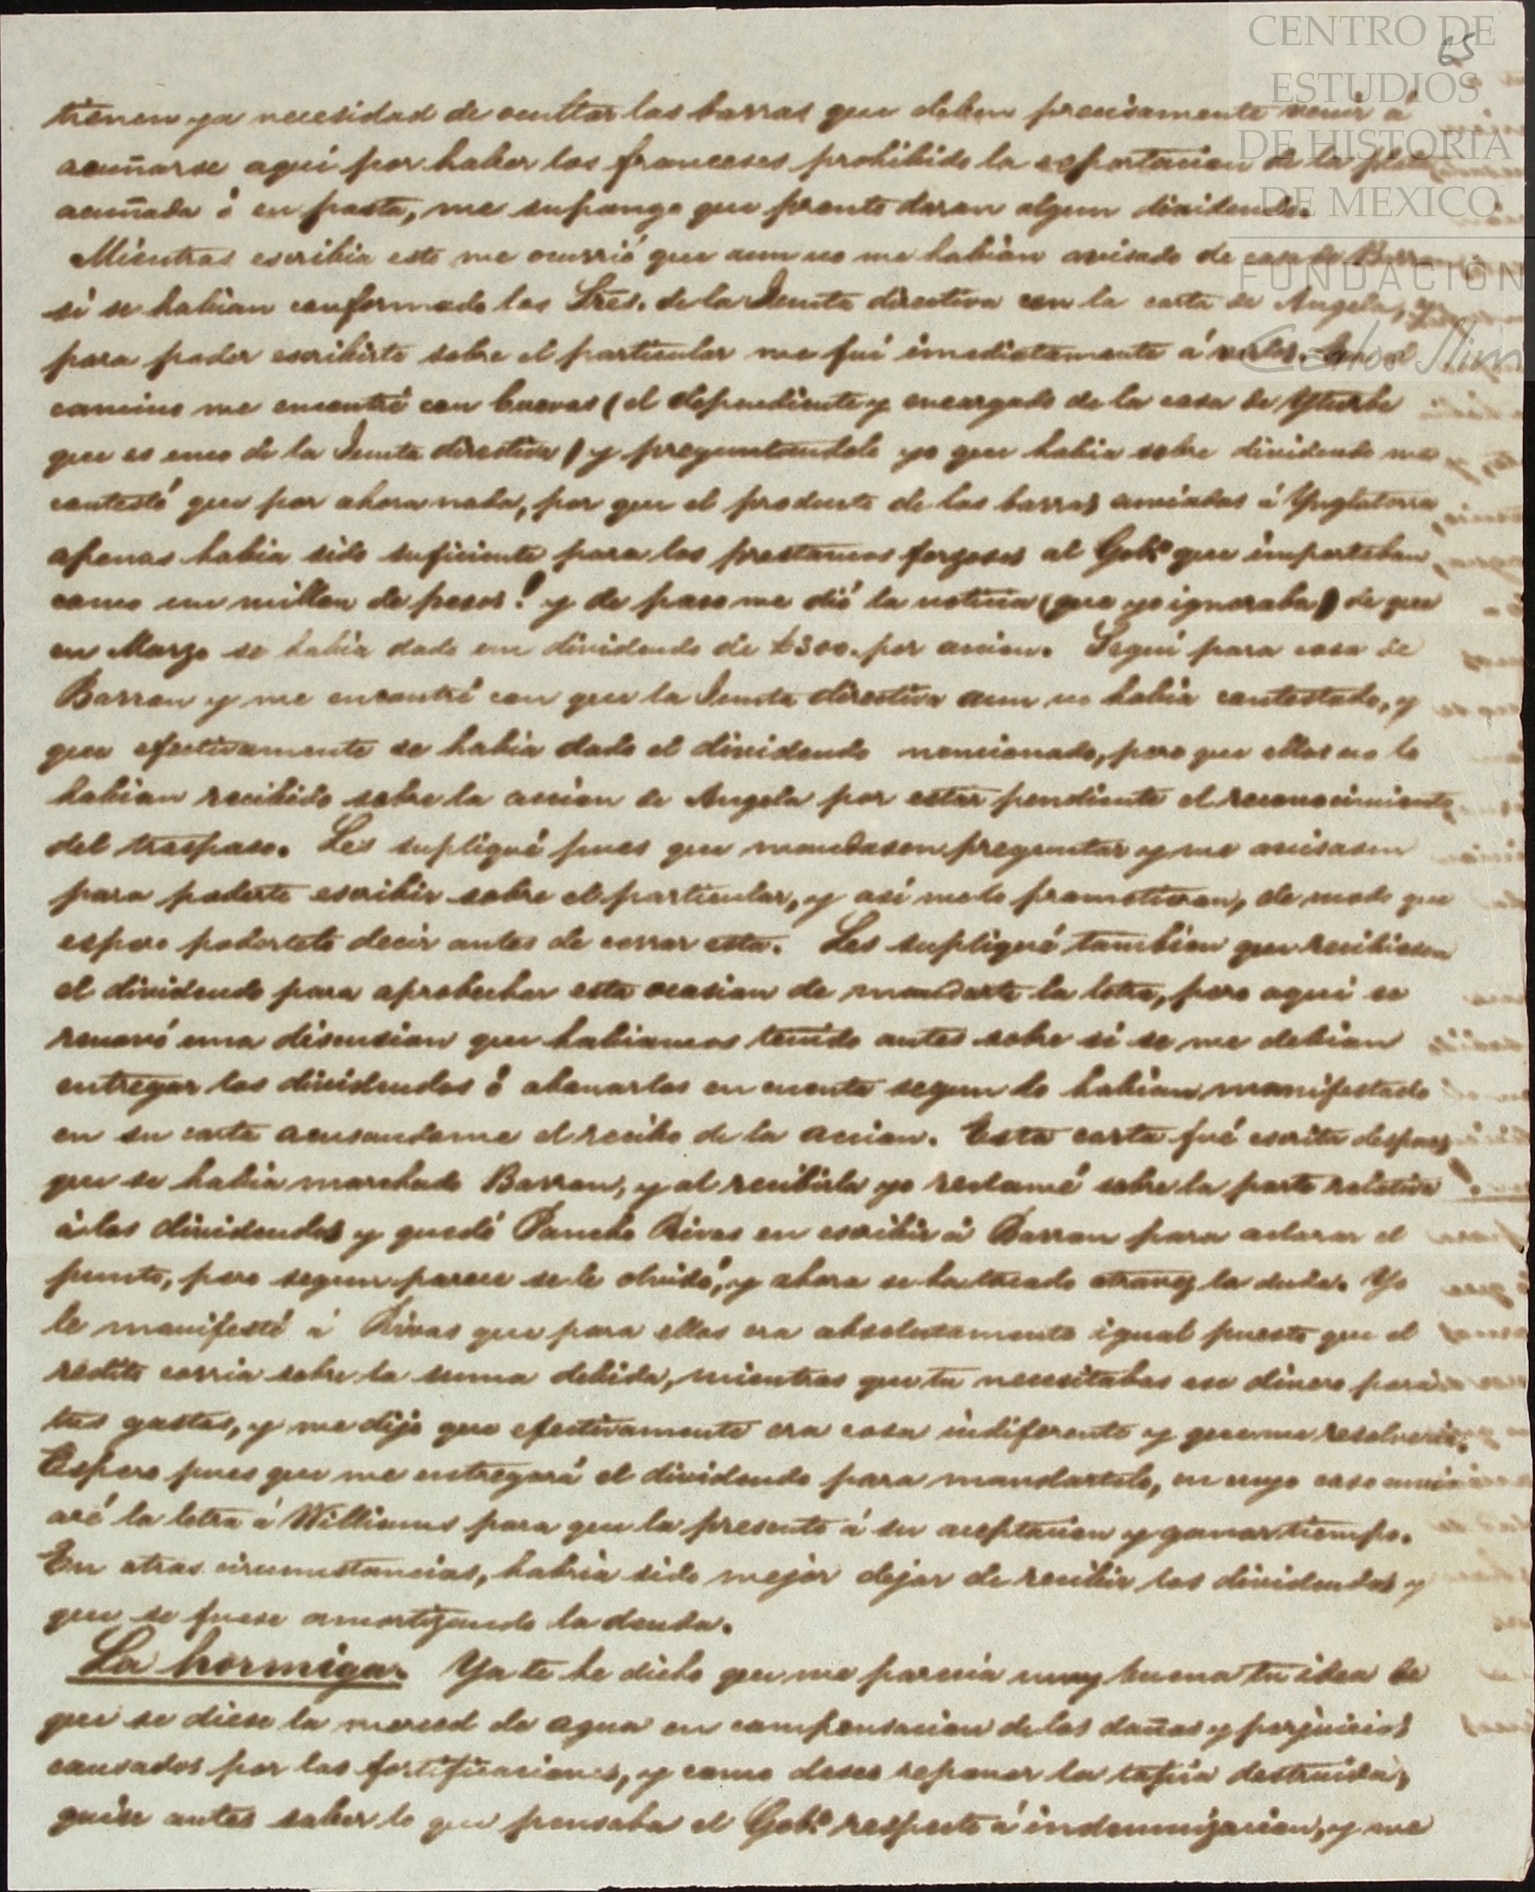 65
CENTRO DE
ESTUDIOS
DE HISTORIA
DE MEXICO
FUNDACIÓN
Carlos Slim
tienen ya necesidad de ocultar las barras que deben precisamente venir á
acuñarse aquí por haber los franceses prohibido la esportacion de la plata
acuñada ó en pasta, me supongo que pronto daran algun dividendo.
Mientras escribia esto me ocurrió que aun no me habian avisado de casa de Barron
si se habian conformado los Sres. de la Junta directiva con la carta de Angela, y
para poder escribirte sobre el particular me fuí imediatamente á verlos. En el
camino me encontré con Cuevas (el dependiente y encargado de la casa de Yturbe
que es uno de la Junta directiva) y preguntandole yo que habia sobre dividendo me
contestó que por ahora nada, por que el producto de las barras enviadas á Ynglaterra
apenas habia sido suficiente para los prestamos forzosos al Gobo. que importaban
como un millon de pesos! y de paso me dió la noticia (que yo ignoraba) de que
en Marzo se habia dado un dividendo de $300. por accion. Seguí para casa de
Barron y me encontré con que la Junta directiva aun no habia contestado, y
que efectivamente se habia dado el dividendo mencionado, pero que ellos no lo
habian recibido sobre la accion de Angela por estar pendiente el reconocimiento
del traspaso. Les supliqué pues que mandasen preguntar y me avisasen
para poderte escribir sobre el particular, y así me lo prometieron, de modo que
espero podertelo decir antes de cerrar esta. Les supliqué tambien que recibiesen
el dividendo para aprobechar esta ocasion de mandarte la letra, pero aquí se
renovó una discusion que habiamos tenido antes sobre si se me debian
entregar los dividendos ó abonarlos en cuenta segun lo habian manifestado
en su carta acusandome el recibo de la accion. Esta carta fué escrita despues
que se habia marchado Barron, y al recibirla yo reclamé sobre la parte relativa
á los dividendos y quedó Pancho Rivas en escribir á Barron para aclarar el
punto, pero segun parece se le olvidó, y ahora se ha tocado otravez la duda. Yo
le manifesté á Rivas que para ellos era absolutamente igual puesto que el
rédito corria sobre la suma debida, mientras que tu necesitabas ese dinero para
tus gastos, y me dijo que efectivamente era cosa indiferente y que me resolveria.
Espero pues que me entregará el dividendo para mandartelo, en cuyo caso envi
aré la letra á Williams para que la presente á su aceptacion y ganar tiempo.
En otras circunstancias, habria sido mejor dejar de recibir los dividendos y
que se fuese amortizando la deuda.
La hormiga. Ya te he dicho que me parecia muy buena tu idea de
que se diese la merced de agua en compensacion de los daños y perjuicios
causados por las fortificaciones, y como deseo reponer la tapia destruida,
quise antes saber lo que pensaba el Gobo. respecto á indemnizacion, y me